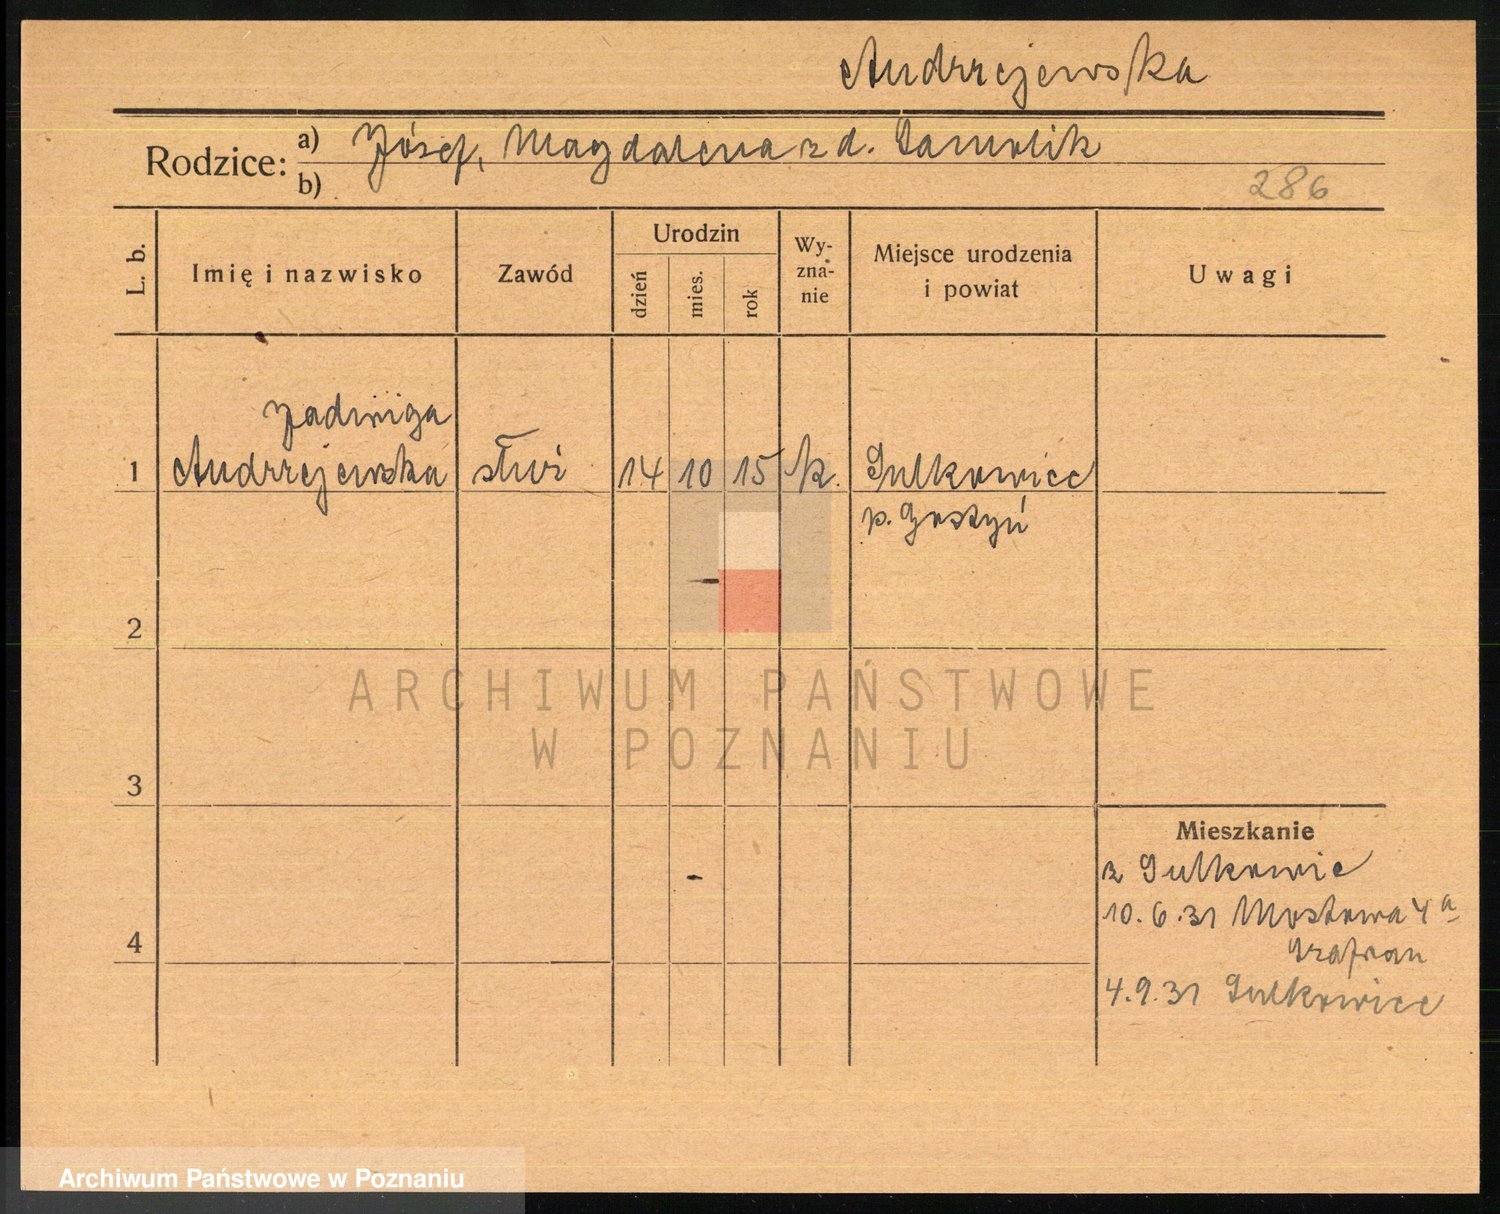 Andrzejewska
Rodzice: a) Józef, Magdalena z d. Samolik
b)
286
L. b. Imię i nazwisko Zawód Urodzin dzień mies. rok Wy-zna-nie Miejsce urodzenia i powiat Uwagi
Jadwiga
1 Andrzejewska służ 14 10 15 k. Sulkowice
p. Gostyń
2
ARCHIWUM PAŃSTWOWE
W POZNANIU
3
Mieszkanie
z Sulkowic
10.6.31 Mostowa 4a
4
4.9.31 Sulkowice
Archiwum Państwowe w Poznaniu